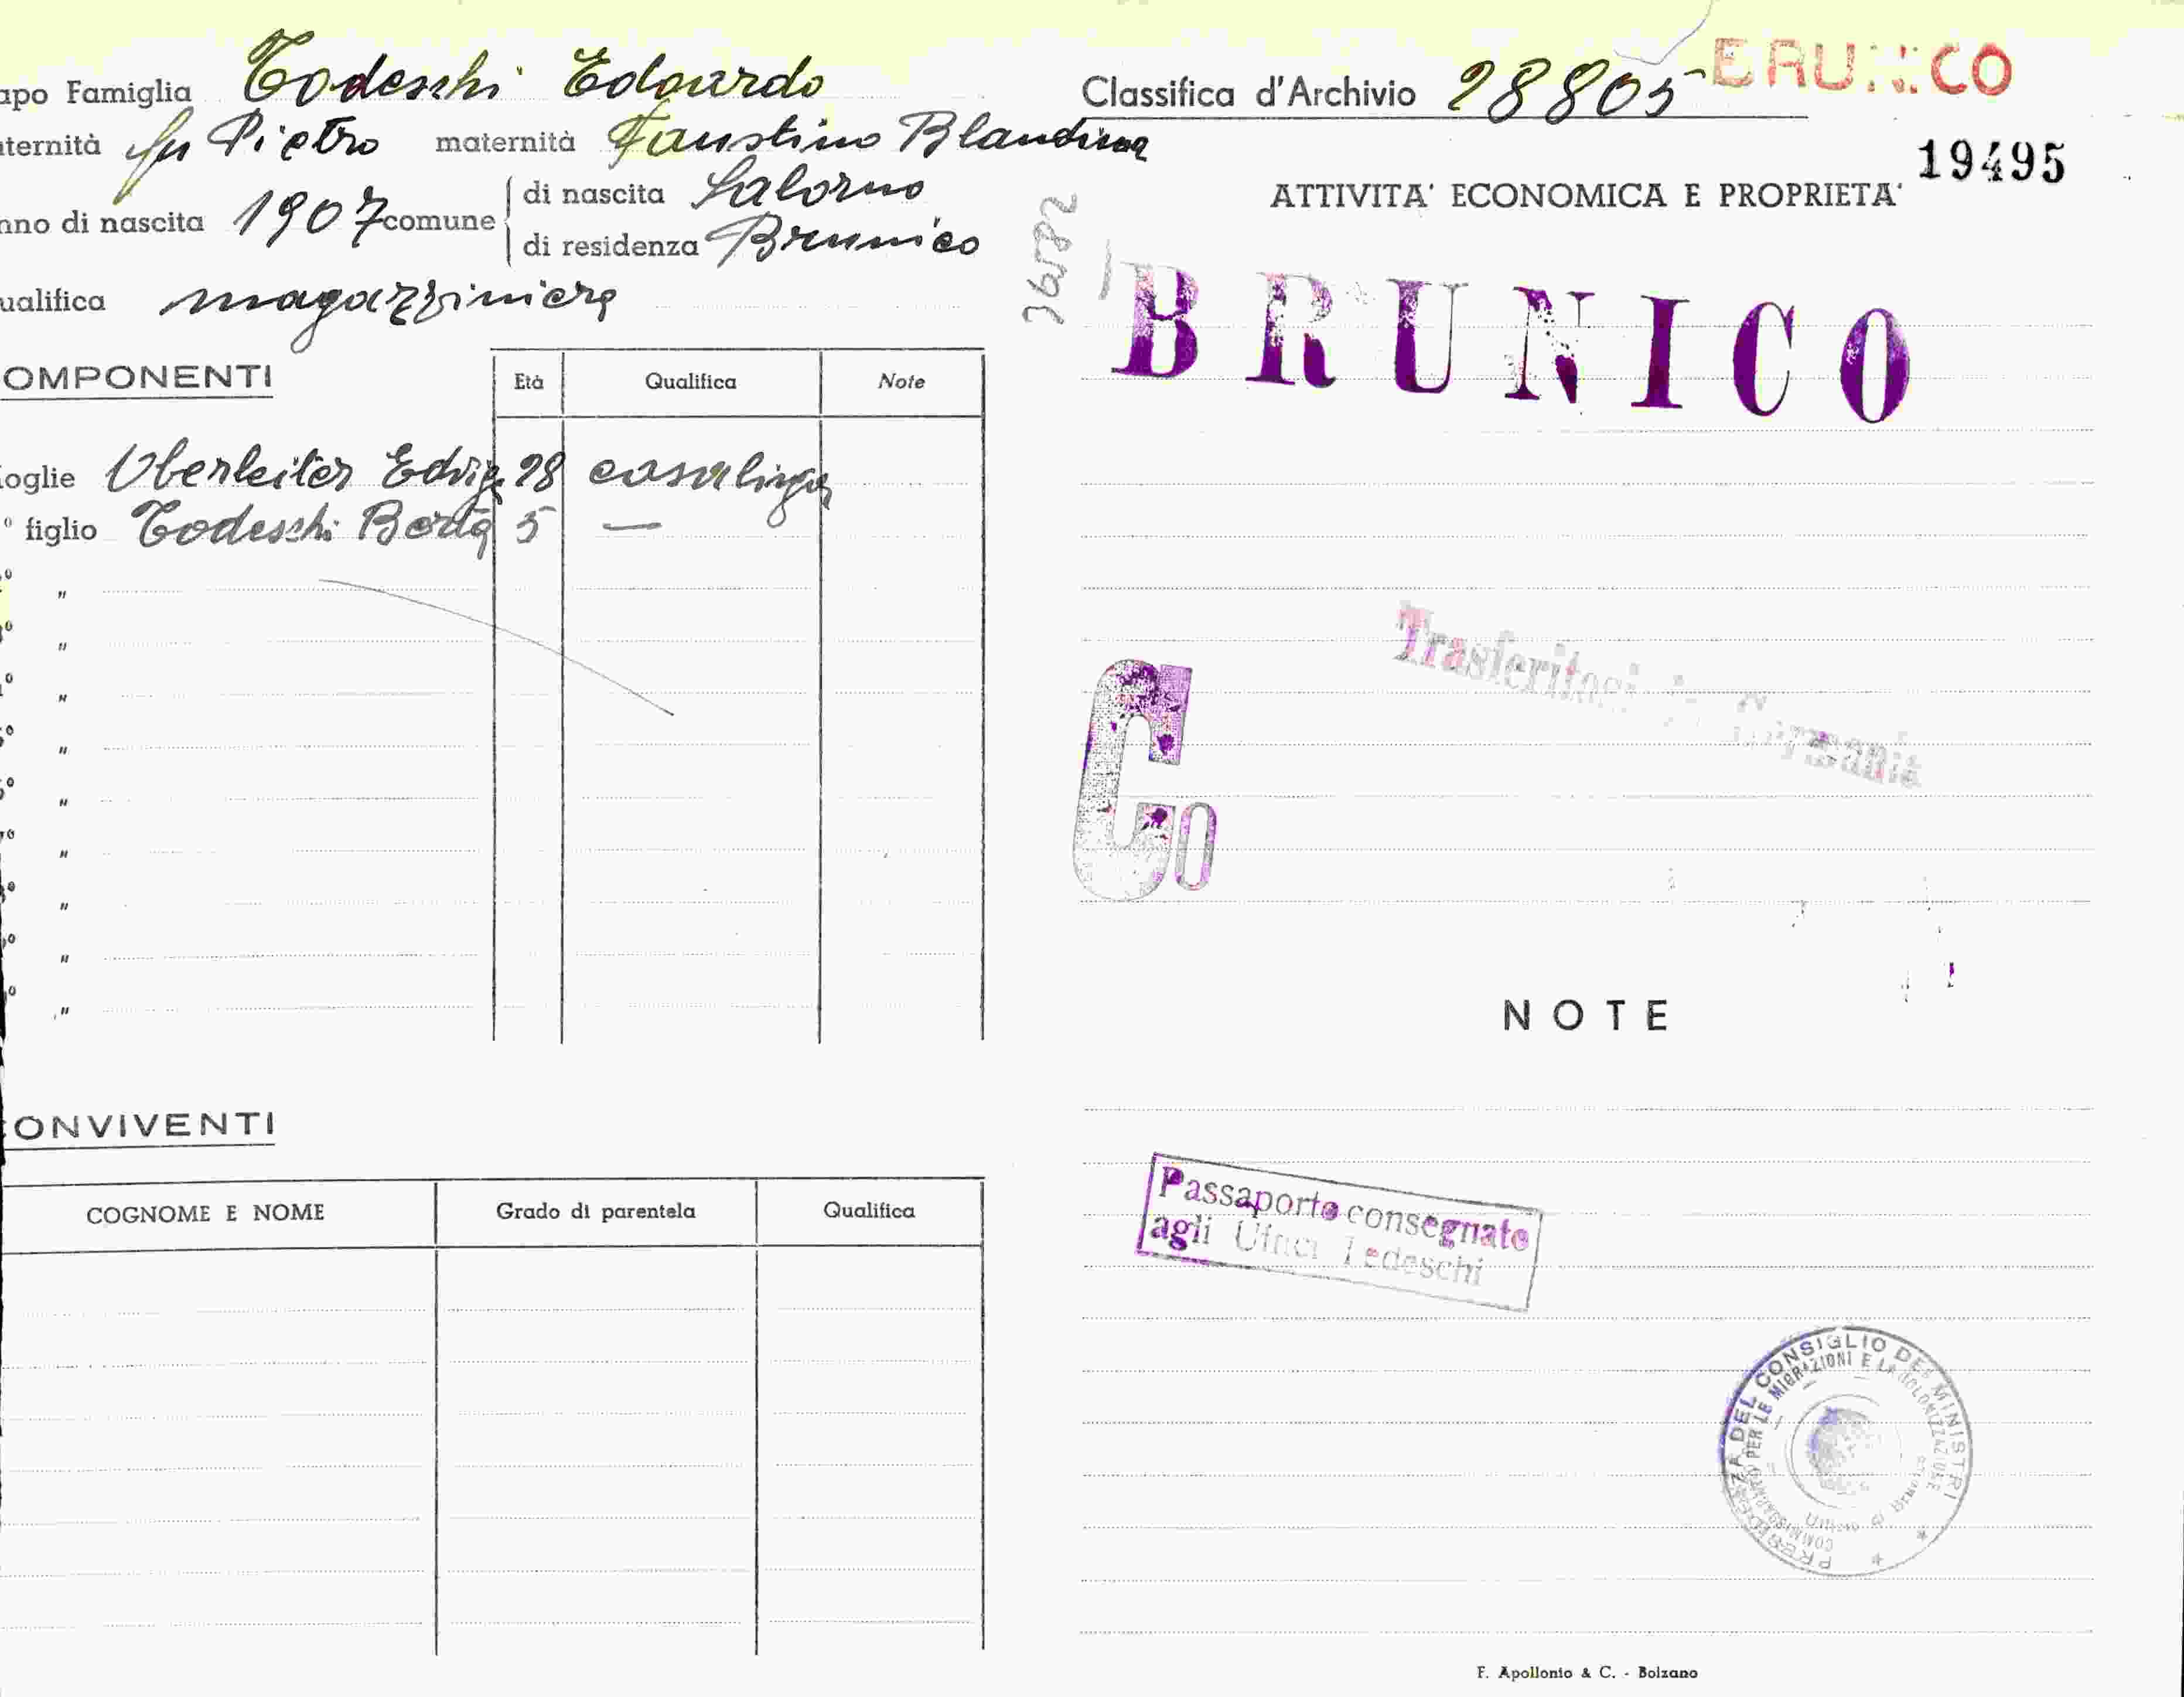 apo Famiglia Todeschi Edoardo
ternità fu Pietro maternità Faustino Blandina
nno di nascita 1907 comune di nascita Salorno
di residenza Brunico
ualifica magazziniere
OMPONENTI Età Qualifica Note
oglie Oberleiter Edvige 28 casalinga
° figlio Todeschi Berta 5 —
° "
° "
° "
° "
° "
° "
° "
° "
° "
ONVIVENTI
COGNOME E NOME Grado di parentela Qualifica
Classifica d'Archivio 28805 BRUNICO
19495
ATTIVITA' ECONOMICA E PROPRIETA'
BRUNICO
Trasferitosi in Germania
NOTE
Passaporto consegnato
agli Uffici Tedeschi
PRESIDENZA DEL CONSIGLIO DEI MINISTRI
COMMISSARIATO PER LE MIGRAZIONI E LA COLONIZZAZIONE
Ufficio di Brunico
F. Apollonio & C. - Bolzano